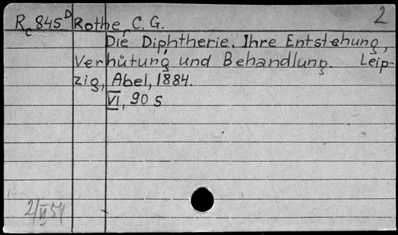 2
Rc 845 D Rothe, C. G.
Die Diphtherie. Ihre Entstehung,
Verhütung und Behandlung. Leip-
zig, Abel, 1884.
VI, 90 S
2/VI 54